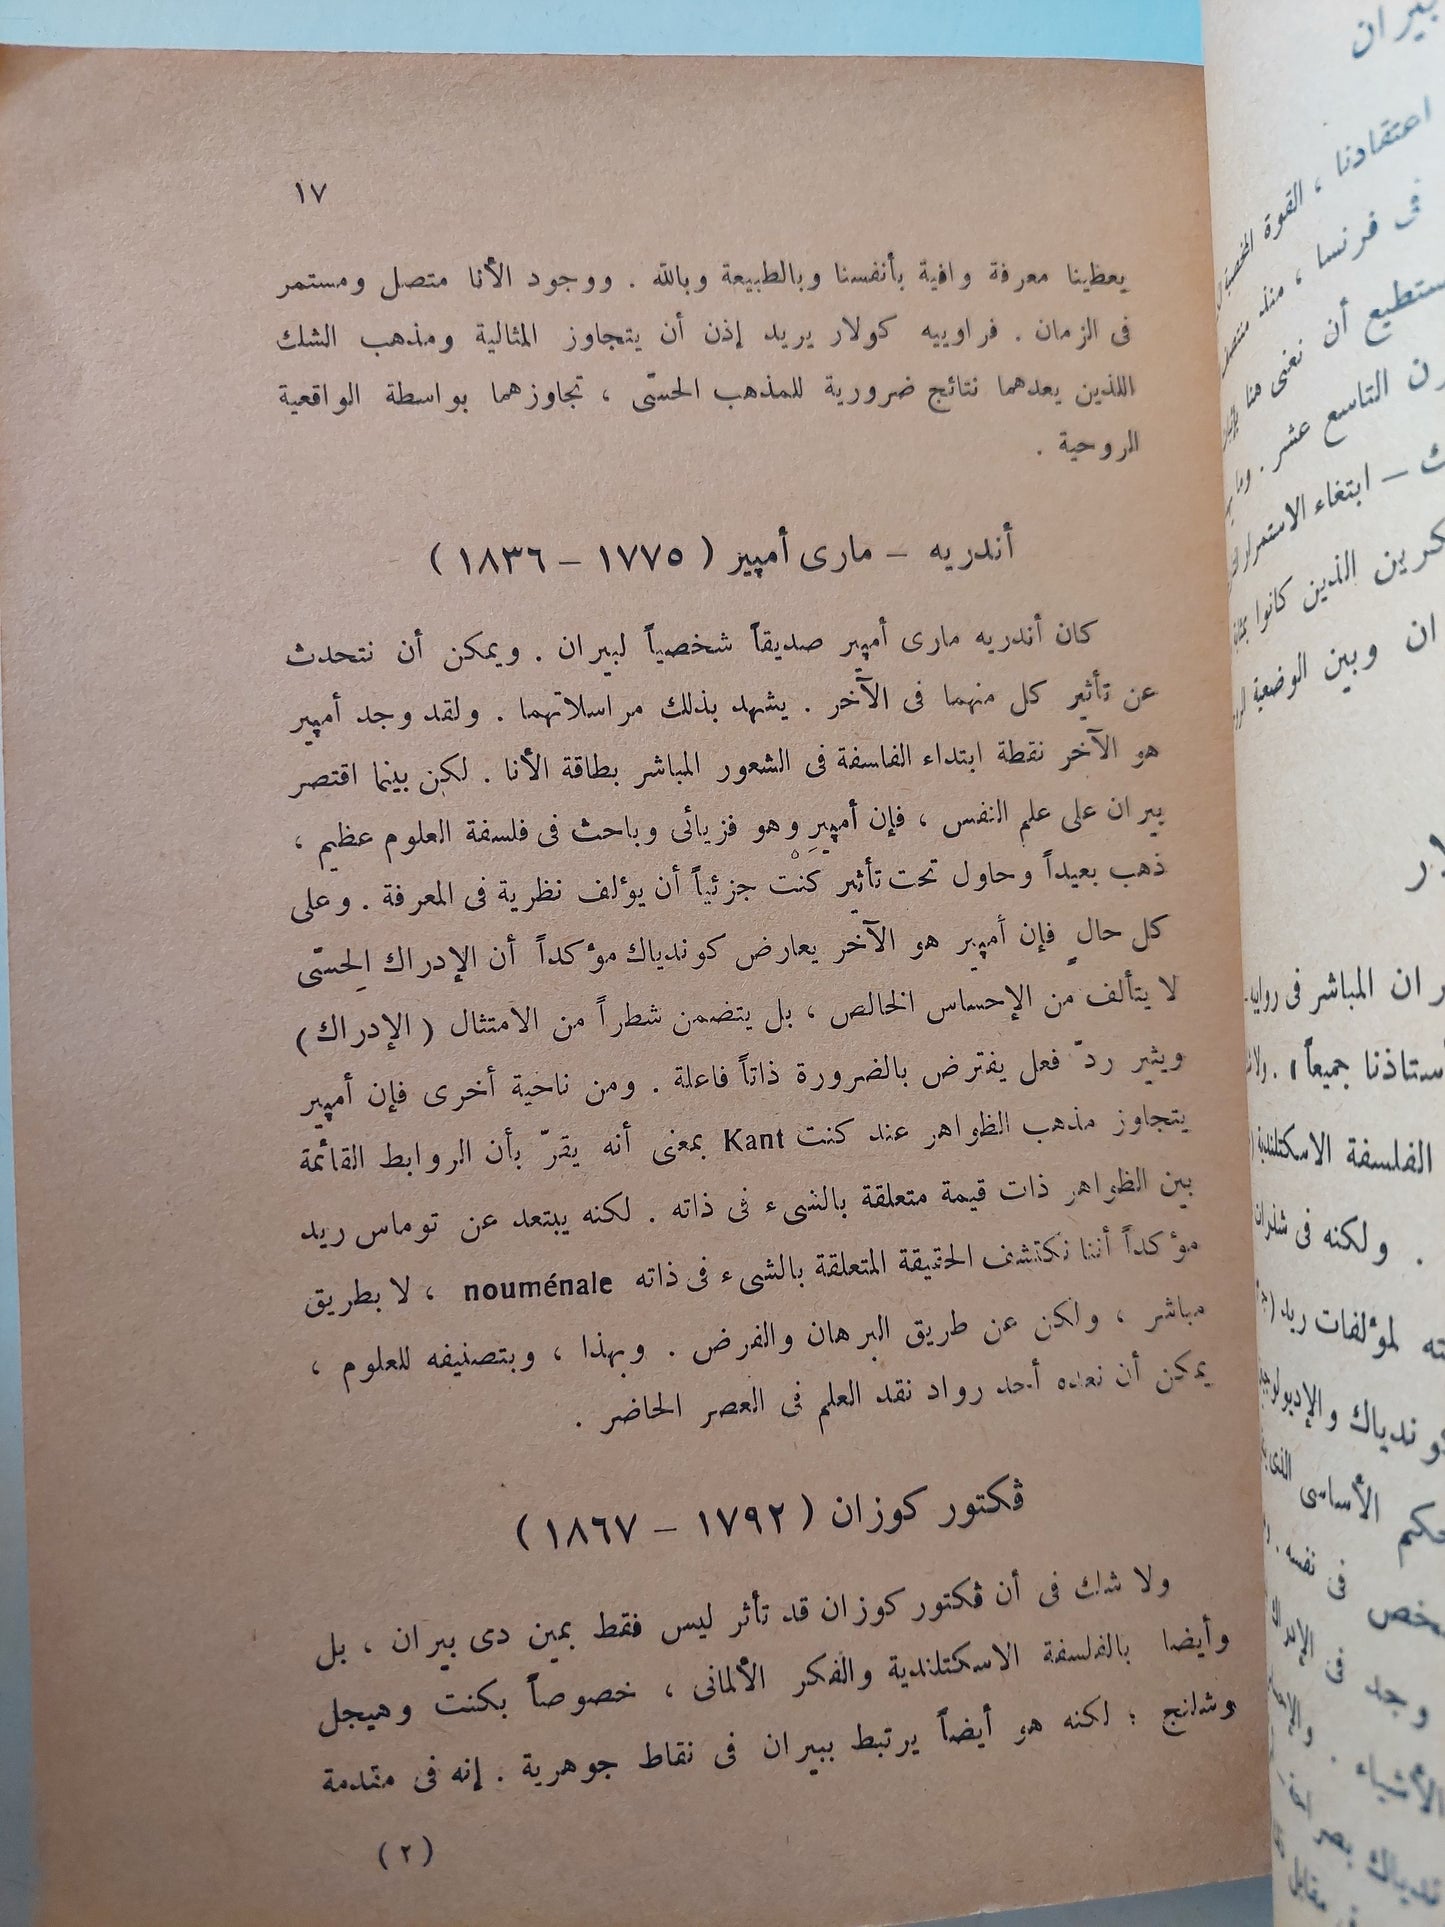 ١٧
يعطينا معرفة وافية بأنفسنا وبالطبيعة وبالله . ووجود الأنا متصل ومستمر
فى الزمان . فراوييه كولار يريد إذن أن يتجاوز المثالية ومذهب الشك
اللذين يعدهما نتائج ضرورية للمذهب الحسّى ، تجاوزهما بواسطة الواقعية
الروحية .
أندريه – مارى أمپير ( ١٧٧٥ – ١٨٣٦ )
كان أندريه مارى أمپير صديقاً شخصياً لبيران . ويمكن أن نتحدث
عن تأثير كل منهما فى الآخر . يشهد بذلك مراسلاتهما . ولقد وجد أمپير
هو الآخر نقطة ابتداء الفاسفة فى الشعور المباشر بطاقة الأنا . لكن بينما اقتصر
بيران على علم النفس ، فإن أمپير وهو فزيائى وباحث فى فلسفة العلوم عظيم ،
ذهب بعيداً وحاول تحت تأثير كَنْت جزئياً أن يؤلف نظرية فى المعرفة . وعلى
كل حالٍ فإن أمپير هو الآخر يعارض كوندياك مؤكداً أن الإدراك الحِسّى
لا يتألف من الإحساس الخالص ، بل يتضمن شطراً من الامتثال ( الإدراك )
ويثير ردّ فعل يفترض بالضرورة ذاتاً فاعلة . ومن ناحية أخرى فإن أمپير
يتجاوز مذهب الظواهر عند كنت Kant بمعنى أنه يقرّ بأن الروابط القائمة
بين الظواهر ذات قيمة متعلقة بالشىء فى ذاته . لكنه يبتعد عن توماس ريد
مؤكداً أننا نكتشف الحقيقة المتعلقة بالشىء فى ذاته nouménale ، لا بطريق
مباشر ، ولكن عن طريق البرهان والفرض . وبهذا ، وبتصنيفه للعلوم ،
يمكن أن نعده أحد رواد نقد العلم فى العصر الحاضر .
ڤكتور كوزان ( ١٧٩٢ – ١٨٦٧ )
ولا شك فى أن ڤكتور كوزان قد تأثر ليس فقط بمين دى بيران ، بل
وأيضا بالفلسفة الاسكتلندية والفكر الألمانى ، خصوصاً بكنت وهيجل
وشلنج ؛ لكنه هو أيضاً يرتبط ببيران فى نقاط جوهرية . إنه فى مقدمة
( ٢ )
بيران
اعتقادنا ، القوة
فى فرنسا ، منذ منتصف
ستطيع أن نغنى هنا
رن التاسع عشر . وما
ك – ابتغاء الاستمرار
كرين الذين كانوا
ان وبين الوضعية
لار
ران المباشر فى روايه
ستاذنا جميعاً » .
الفلسفة الاسكتلندية
. ولكنه فى شذرات
ته لمؤلفات ريد
وندياك والإديولوجية
حكم الأساسى الذى
خص فى نفسه .
وجد فى
الأشياء .
مقابل